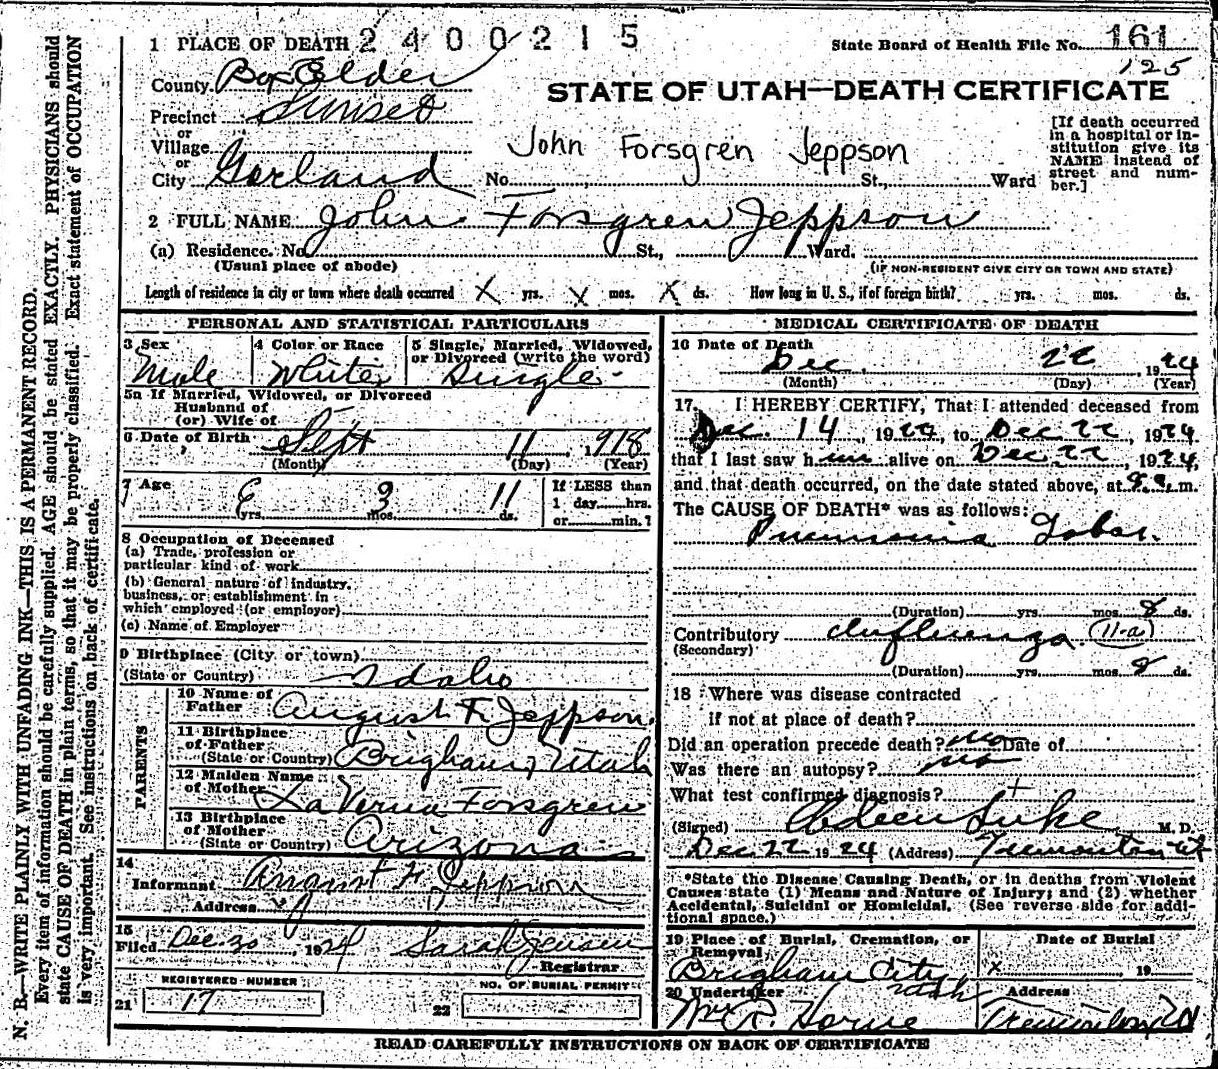 1 PLACE OF DEATH 2400215
State Board of Health File No. 161
125
County Box Elder
STATE OF UTAH—DEATH CERTIFICATE
Precinct Sunset
or
Village
or
City Garland No. St., Ward
John Forsgren Jeppson
[If death occurred in a hospital or institution give its NAME instead of street and number.]
2 FULL NAME John Forsgren Jeppson
(a) Residence. No. St., Ward.
(Usual place of abode)
(IF NON-RESIDENT GIVE CITY OR TOWN AND STATE)
Length of residence in city or town where death occurred X yrs. X mos. X ds. How long in U. S., if of foreign birth? yrs. mos. ds.
PERSONAL AND STATISTICAL PARTICULARS
3 Sex
Male
4 Color or Race
White
5 Single, Married, Widowed, or Divorced (write the word)
Single
5a If Married, Widowed, or Divorced
Husband of
(or) Wife of
6 Date of Birth Sept 11, 1918
(Month) (Day) (Year)
7 Age 6 3 11
yrs. mos. ds.
If LESS than
1 day hrs.
or min.?
8 Occupation of Deceased
(a) Trade, profession or
particular kind of work
(b) General nature of industry,
business, or establishment in
which employed (or employer)
(c) Name of Employer
9 Birthplace (City or town)
(State or Country) Idaho
PARENTS
10 Name of
Father August F. Jeppson
11 Birthplace
of Father
(State or Country) Brigham, Utah
12 Maiden Name
of Mother La Verna Forsgren
13 Birthplace
of Mother
(State or Country) Arizona
14
Informant August F Jeppson
Address
15
Filed Dec. 30 1924 Sarah Jensen
Registrar
REGISTERED NUMBER
21 17
NO. OF BURIAL PERMIT
22
MEDICAL CERTIFICATE OF DEATH
16 Date of Death
Dec. 22, 1924
(Month) (Day) (Year)
17. I HEREBY CERTIFY, That I attended deceased from
Dec. 14, 1924, to Dec 22, 1924
that I last saw him alive on Dec 22, 1924,
and that death occurred, on the date stated above, at m.
The CAUSE OF DEATH* was as follows:
Pneumonia Lobar.
(Duration) yrs. mos. 8 ds.
Contributory Influenza (11-a)
(Secondary)
(Duration) yrs. mos. 8 ds.
18 Where was disease contracted
if not at place of death?
Did an operation precede death? no Date of
Was there an autopsy? no
What test confirmed diagnosis? +
(Signed) Luke M. D.
Dec 22 1924 (Address) Tremonton Ut
*State the Disease Causing Death, or in deaths from Violent
Causes state (1) Means and Nature of Injury; and (2) whether
Accidental, Suicidal or Homicidal. (See reverse side for addi-
tional space.)
19 Place of Burial, Cremation, or
Removal
Brigham City
Utah
Date of Burial
X , 19
20 Undertaker
Wm R. Horne
Address
Tremonton Ut
READ CAREFULLY INSTRUCTIONS ON BACK OF CERTIFICATE
N. B.—WRITE PLAINLY WITH UNFADING INK—THIS IS A PERMANENT RECORD.
Every item of information should be carefully supplied. AGE should be stated EXACTLY. PHYSICIANS should
state CAUSE OF DEATH in plain terms, so that it may be properly classified. Exact statement of OCCUPATION
is very important. See instructions on back of certificate.